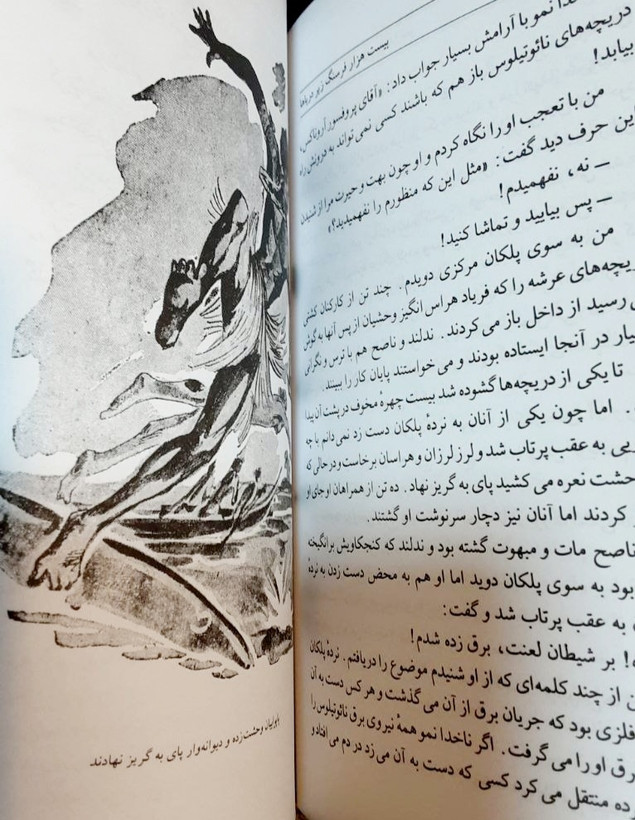 بیست هزار فرسنگ زیر دریاها
خدا نمو با آرامش بسیار جواب داد: «آقای پروفسور آروناکس،
دریچه‌های نائوتیلوس باز هم که باشند کسی نمی‌تواند به درونش راه
بیابد!
من با تعجب او را نگاه کردم و او چون بهت و حیرت مرا از شنیدن
این حرف دید گفت: «مثل این که منظورم را نفهمیدید؟»
— نه، نفهمیدم!
— پس بیایید و تماشا کنید!
من به سوی پلکان مرکزی دویدم. چند تن از کارکنان کشتی
دریچه‌های عرشه را که فریاد هراس انگیز وحشیان از پس آنها به گوش
می رسید از داخل باز می‌کردند. ندلند و ناصح هم با ترس و نگرانی
بسیار در آنجا ایستاده بودند و می‌خواستند پایان کار را ببینند.
تا یکی از دریچه‌ها گشوده شد بیست چهرهٔ مخوف در پشت آن پیدا
. اما چون یکی از آنان به نردهٔ پلکان دست زد نمی‌دانم با چه
به عقب پرتاب شد و لرز لرزان و هراسان برخاست و در حالی که
وحشت نعره می‌کشید پای به گریز نهاد. ده تن از همراهان او جای او
کردند اما آنان نیز دچار سرنوشت او گشتند.
ناصح مات و مبهوت گشته بود و ندلند که کنجکاویش برانگیخته
بود به سوی پلکان دوید اما او هم به محض دست زدن به نردهٔ
به عقب پرتاب شد و گفت:
! بر شیطان لعنت، برق زده شدم!
از چند کلمه‌ای که از او شنیدم موضوع را دریافتم. نردهٔ پلکان
فلزی بود که جریان برق از آن می‌گذشت و هر کس دست به آن
برق او را می‌گرفت. اگر ناخدا نمو همهٔ نیروی برق نائوتیلوس را
منتقل می‌کرد کسی که دست به آن می‌زد در دم می‌افتاد و
وحشت‌زده و دیوانه‌وار پای به گریز نهادند